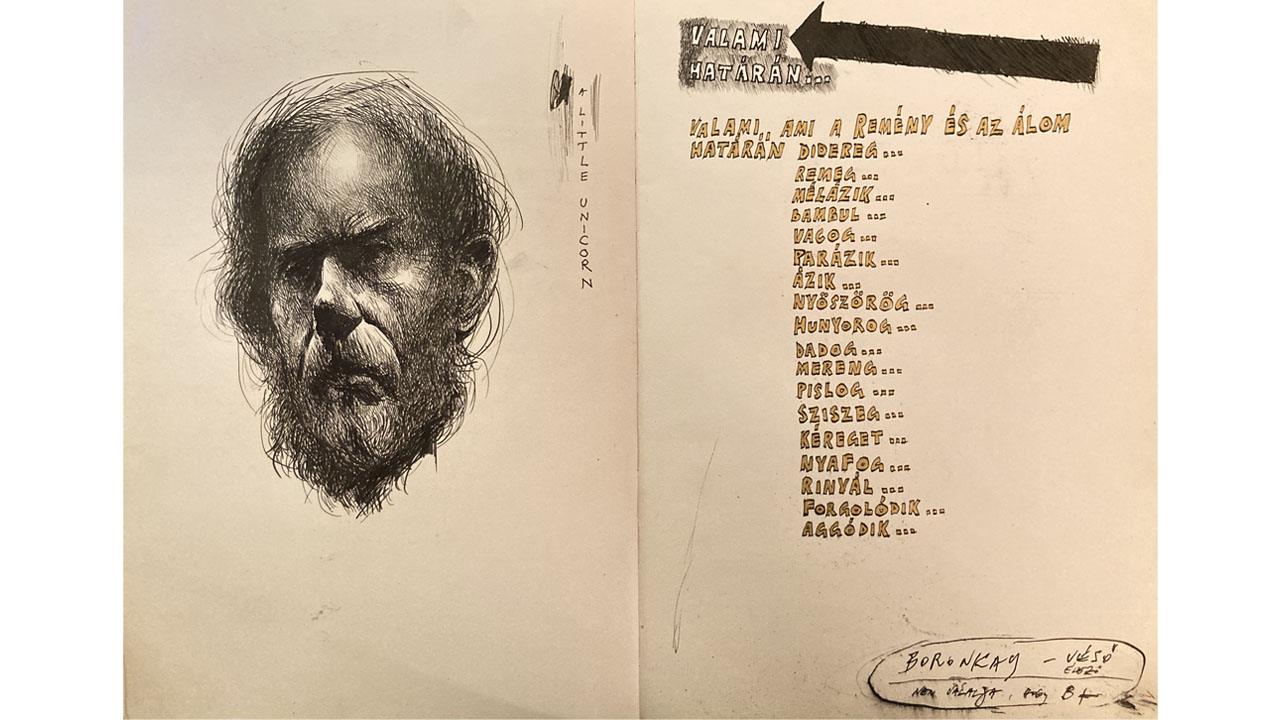 A LITTLE UNICORN
VALAMI
HATÁRÁN...
VALAMI, AMI A REMÉNY ÉS AZ ÁLOM
HATÁRÁN DIDEREG...
REMEG...
MÉLÁZIK...
BAMBUL...
VACOG...
PARÁZIK...
ÁZIK...
NYÖSZÖRÖG...
HUNYOROG...
DADOG...
MERENG...
PISLOG...
SZISZEG...
KÉREGET...
NYAFOG...
RINYÁL...
FORGOLÓDIK...
AGGÓDIK...
BORONKAY - VÉSŐ
NEM